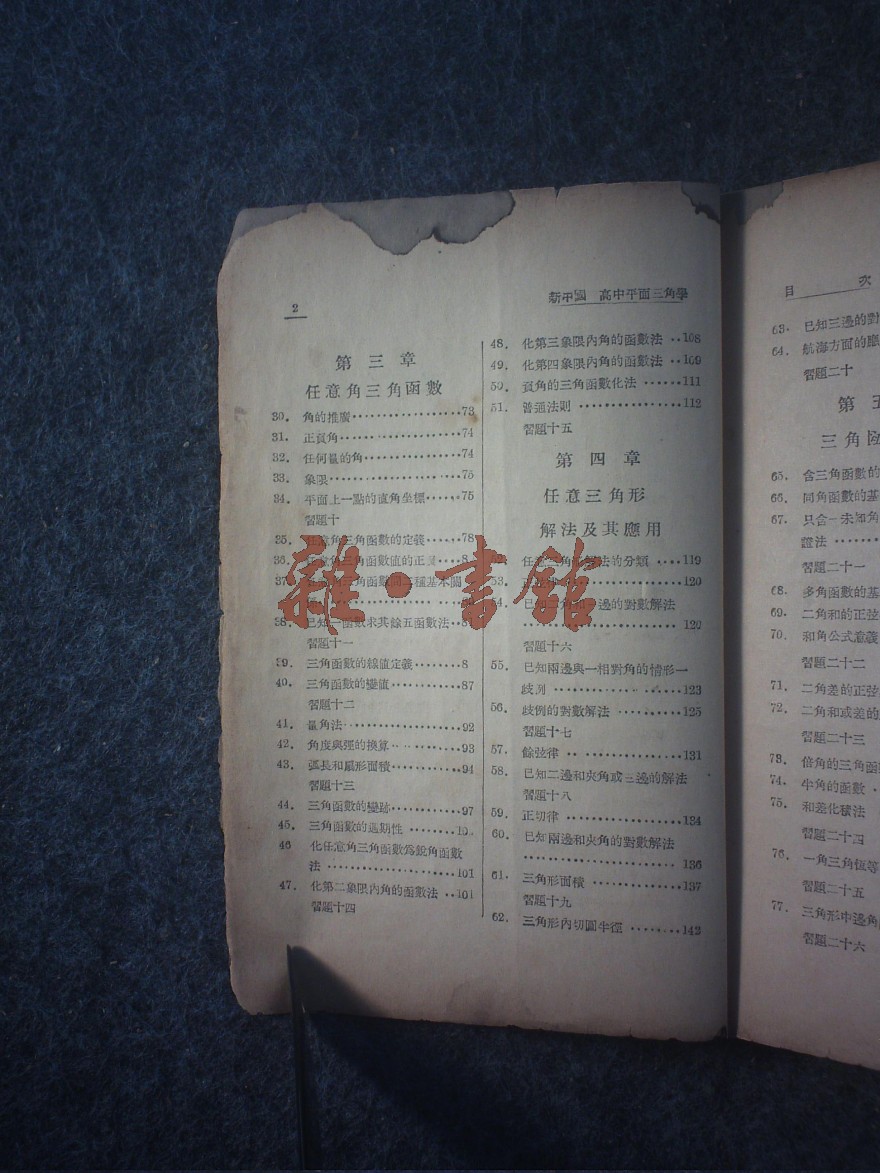 2
新中國 高中平面三角學
第三章
任意角三角函數
30. 角的推廣··················73
31. 正負角··················74
32. 任何量的角··············74
33. 象限··················75
34. 平面上一點的直角坐標······75
習題十
35. 任意角三角函數的定義······78
36. 三角函數值的正
37. 三角函數 基本關
38. 已知一函數求其餘五函數法
習題十一
39. 三角函數的線值定義········8
40. 三角函數的變值··········87
習題十二
41. 量角法··················92
42. 角度與弳的換算··········93
43. 弧長和扇形面積··········94
習題十三
44. 三角函數的變跡··········97
45. 三角函數的週期性········10
46 化任意角三角函數爲銳角函數
法··················101
47. 化第二象限內角的函數法··101
習題十四
48. 化第三象限內角的函數法··108
49. 化第四象限內角的函數法··109
50. 負角的三角函數化法······111
51. 普通法則················112
習題十五
第四章
任意三角形
解法及其應用
任意三角形解法的分類·····119
53. 正弦律··················120
54. 已知二角和一邊的對數解法
··················120
習題十六
55. 已知兩邊與一相對角的情形一
歧例··················123
56. 歧例的對數解法··········125
習題十七
57. 餘弦律··················131
58. 已知二邊和夾角或三邊的解法
習題十八
59. 正切律··················134
60. 已知兩邊和夾角的對數解法
··················136
61. 三角形面積··············137
習題十九
62. 三角形內切圓半徑········142
目 次
63. 已知三邊的對
64. 航海方面的應
習題二十
第五
三角
65. 含三角函數的
66. 同角函數的基
67. 只含一未知角
證法
習題二十一
68. 多角函數的基
69. 二角和的正弦
70. 和角公式意義
習題二十二
71. 二角差的正弦
72. 二角和或差的
習題二十三
73. 倍角的三角函
74. 半角的函數
75. 和差化積法
習題二十四
76. 一角三角恆等
習題二十五
77. 三角形中邊角
習題二十六
雜·書館